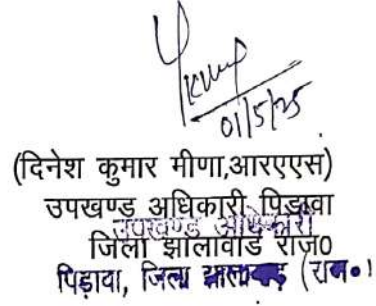 01/5/25
(दिनेश कुमार मीणा,आरएएस)
उपखण्ड अधिकारी पिड़ावा
उपखण्ड अधिकारी
जिला झालावाड राज0
पिड़ावा, जिला झालावाड़ (राज०)